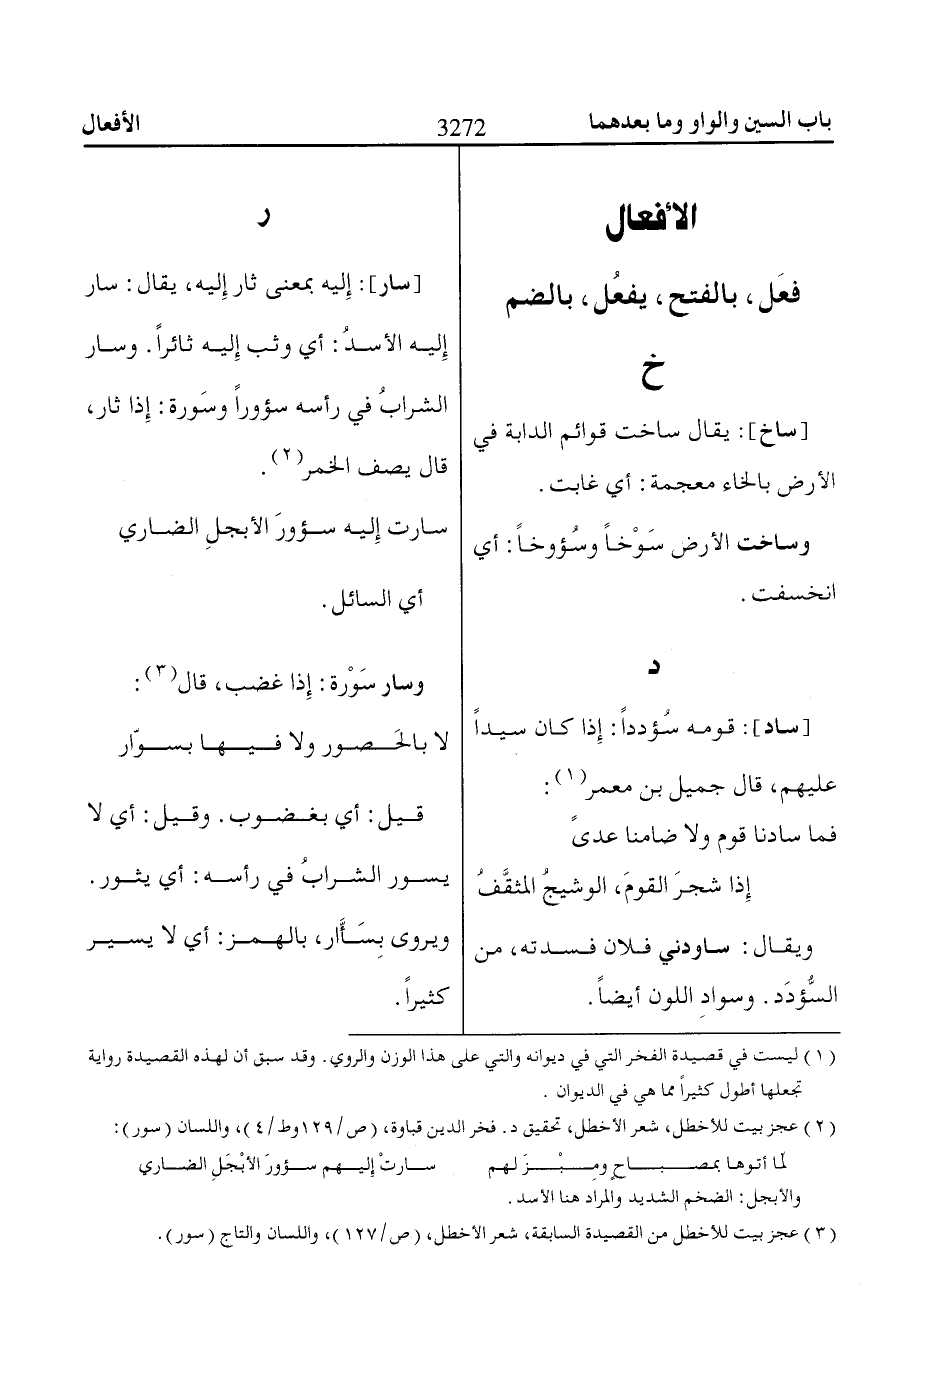 باب السين والواو وما بعدهما 3272 الأفعال
الأفعال
فعَل، بالفتح، يفعُل، بالضم
خ
[ساخ]: يقال ساخت قوائم الدابة في
الأرض بالخاء معجمة: أي غابت.
وساخت الأرض سَوْخاً وسُؤوخاً: أي
انخسفت.
د
[ساد]: قومه سُؤدداً: إذا كان سيداً
عليهم، قال جميل بن معمر(١):
فما سادنا قوم ولا ضامنا عدىً
إذا شجرَ القومَ، الوشيجُ المثقَّفُ
ويقال: ساودني فلان فسدته، من
السُّؤدَد. وسوادِ اللون أيضاً.
ر
[سار]: إليه بمعنى ثار إليه، يقال: سار
إليه الأسدُ: أي وثب إليه ثائراً. وسار
الشرابُ في رأسه سؤوراً وسَورة: إذا ثار،
قال يصف الخمر(٢).
سارت إليه سؤورَ الأبجلِ الضاري
أي السائل.
وسار سَوْرة: إذا غضب، قال(٣):
لا بالحَصور ولا فيها بسوّار
قيل: أي بغضوب. وقيل: أي لا
يسور الشرابُ في رأسه: أي يثور.
ويروى بِسَأَّر، بالهمز: أي لا يسير
كثيراً.
(١) ليست في قصيدة الفخر التي في ديوانه والتي على هذا الوزن والروي. وقد سبق أن لهذه القصيدة رواية
تجعلها أطول كثيراً مما هي في الديوان.
(٢) عجز بيت للأخطل، شعر الأخطل، تحقيق د. فخر الدين قباوة، (ص/١٢٩وط/٤)، واللسان (سور):
لما أتوها بمصباحٍ ومِبْزَلهم سارتْ إليهم سؤورَ الأبْجَلِ الضاري
والأبجل: الضخم الشديد والمراد هنا الأسد.
(٣) عجز بيت للأخطل من القصيدة السابقة، شعر الأخطل، (ص/١٢٧)، واللسان والتاج (سور).